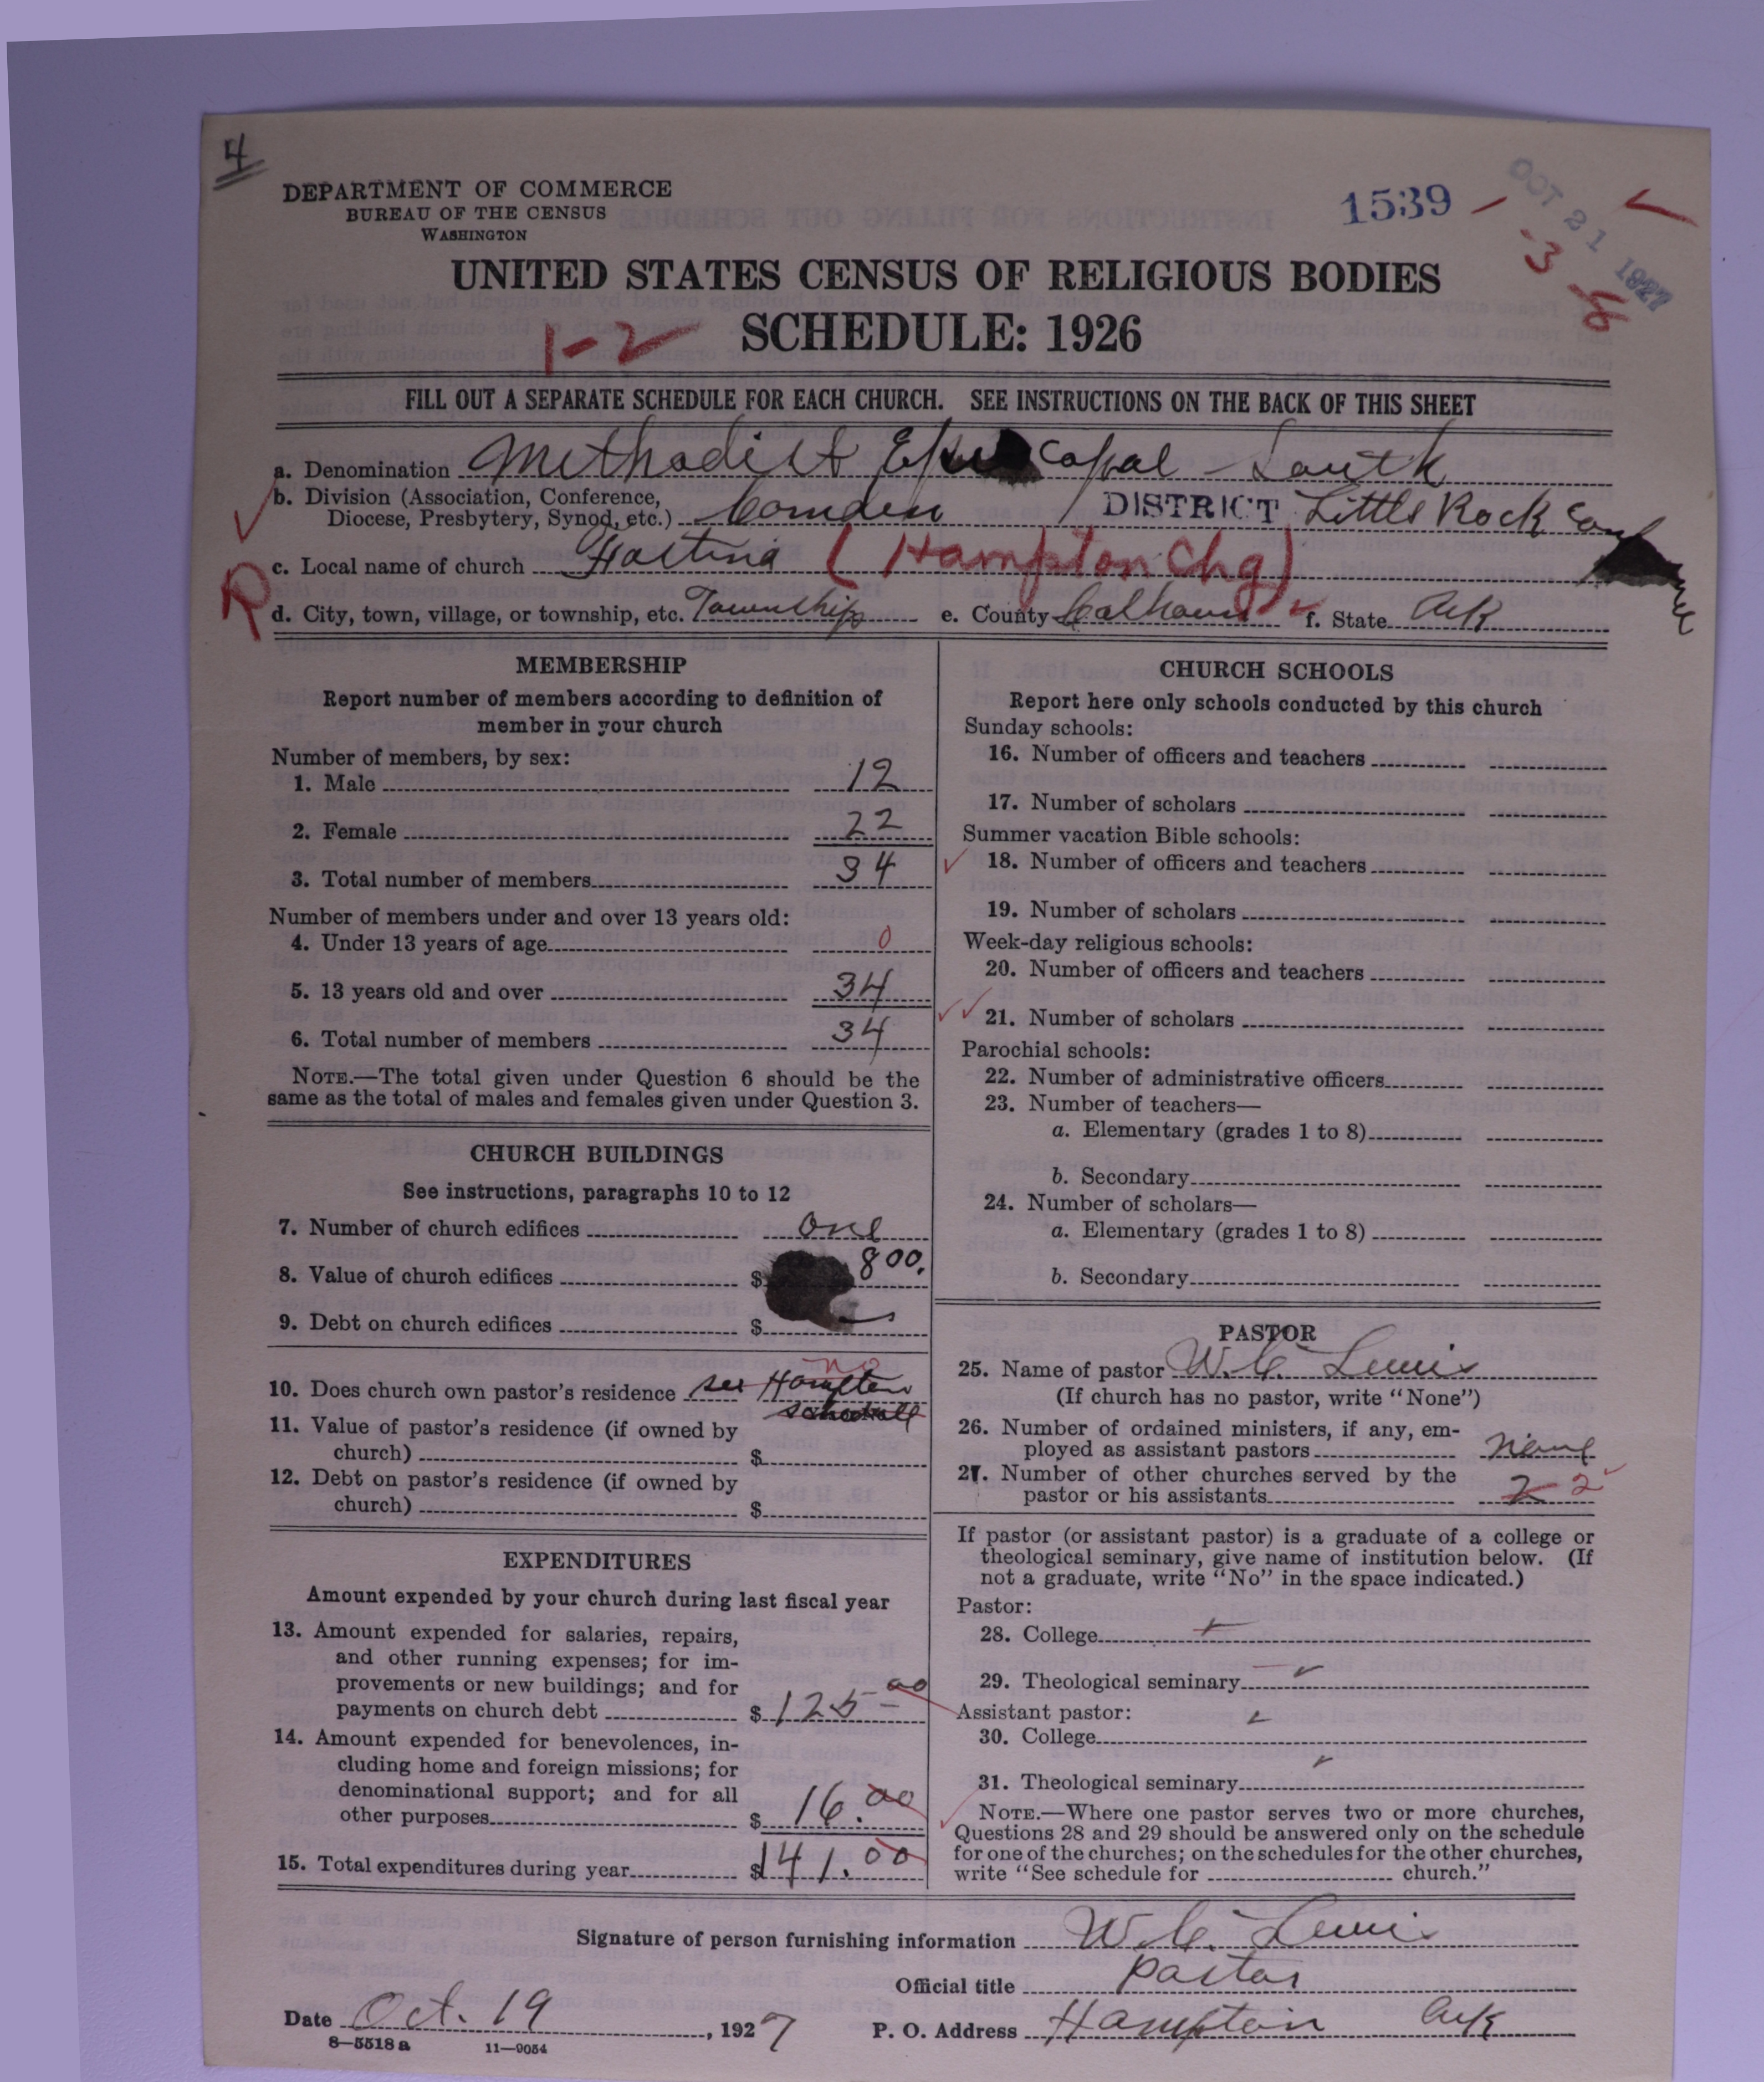 4
DEPARTMENT OF COMMERCE
BUREAU OF THE CENSUS
WASHINGTON
1539
OCT 21 1927
-3
UNITED STATES CENSUS OF RELIGIOUS BODIES
1-2
SCHEDULE: 1926
FILL OUT A SEPARATE SCHEDULE FOR EACH CHURCH. SEE INSTRUCTIONS ON THE BACK OF THIS SHEET
a. Denomination Methodist Episcopal - South
b. Division (Association, Conference,
Diocese, Presbytery, Synod, etc.) Camden / DISTRICT Little Rock Conf
c. Local name of church (Hampton Chg)
R
d. City, town, village, or township, etc. Township e. County Calhoun f. State Ark
MEMBERSHIP
Report number of members according to definition of
member in your church
Number of members, by sex:
1. Male 12
2. Female 22
3. Total number of members 34
Number of members under and over 13 years old:
4. Under 13 years of age 0
5. 13 years old and over 34
6. Total number of members 34
NOTE.—The total given under Question 6 should be the
same as the total of males and females given under Question 3.
CHURCH BUILDINGS
See instructions, paragraphs 10 to 12
7. Number of church edifices one
8. Value of church edifices $ 800.
9. Debt on church edifices $
no
10. Does church own pastor's residence see Hampton
11. Value of pastor's residence (if owned by
church) $
12. Debt on pastor's residence (if owned by
church) $
EXPENDITURES
Amount expended by your church during last fiscal year
13. Amount expended for salaries, repairs,
and other running expenses; for im-
provements or new buildings; and for
payments on church debt $ 125-00
14. Amount expended for benevolences, in-
cluding home and foreign missions; for
denominational support; and for all
other purposes $ 16.00
15. Total expenditures during year $141.00
CHURCH SCHOOLS
Report here only schools conducted by this church
Sunday schools:
16. Number of officers and teachers
17. Number of scholars
Summer vacation Bible schools:
18. Number of officers and teachers
19. Number of scholars
Week-day religious schools:
20. Number of officers and teachers
21. Number of scholars
Parochial schools:
22. Number of administrative officers
23. Number of teachers—
a. Elementary (grades 1 to 8)
b. Secondary
24. Number of scholars—
a. Elementary (grades 1 to 8)
b. Secondary
PASTOR
25. Name of pastor W. C. Lewis
(If church has no pastor, write "None")
26. Number of ordained ministers, if any, em-
ployed as assistant pastors None
27. Number of other churches served by the
pastor or his assistants 2 2
If pastor (or assistant pastor) is a graduate of a college or
theological seminary, give name of institution below. (If
not a graduate, write "No" in the space indicated.)
Pastor:
28. College
29. Theological seminary
Assistant pastor:
30. College
31. Theological seminary
NOTE.—Where one pastor serves two or more churches,
Questions 28 and 29 should be answered only on the schedule
for one of the churches; on the schedules for the other churches,
write "See schedule for church."
Signature of person furnishing information W. C. Lewis
Official title Pastor
Date Oct. 19, 1927 P. O. Address Hampton Ark
8—5518 a 11—9054